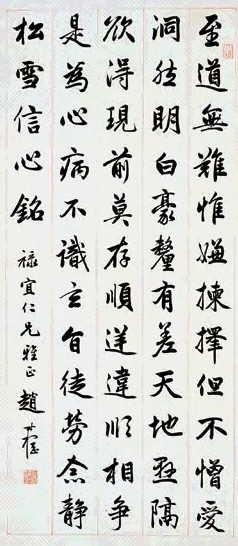 至道無難惟嫌揀擇但不憎愛
洞然明白豪釐有差天地懸隔
欲得現前莫存順逆違順相争
是為心病不識玄旨徒勞念静
松雪信心銘 祿宜仁兄雅正 趙